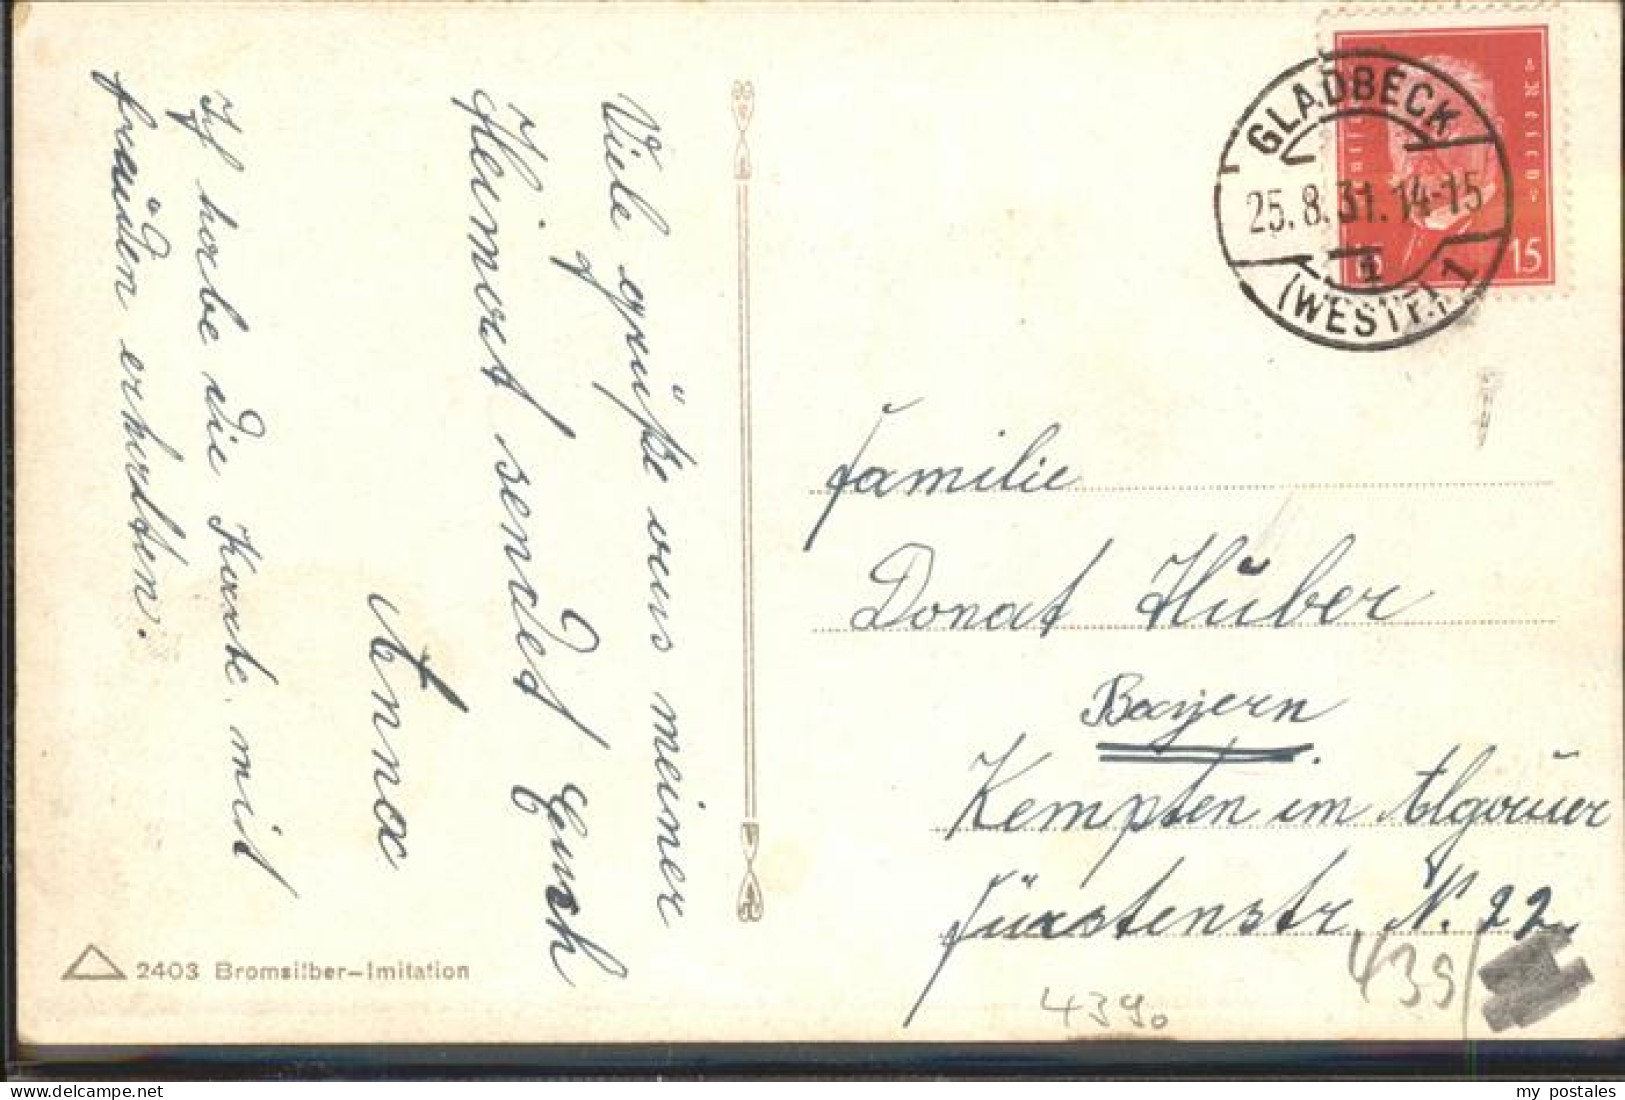 Viele grüße aus meiner
Heimat sendet Euch
Anna
Ich habe die Karte mit
fräuden erhalten.
2403 Bromsilber-Imitation
GLADBECK
25.8.31.14-15
(WESTF.) 1
15
Familie
Donat Huber
Bayern
Kempten im Algäuer
Fürstenstr. N. 22
439
439
my postales